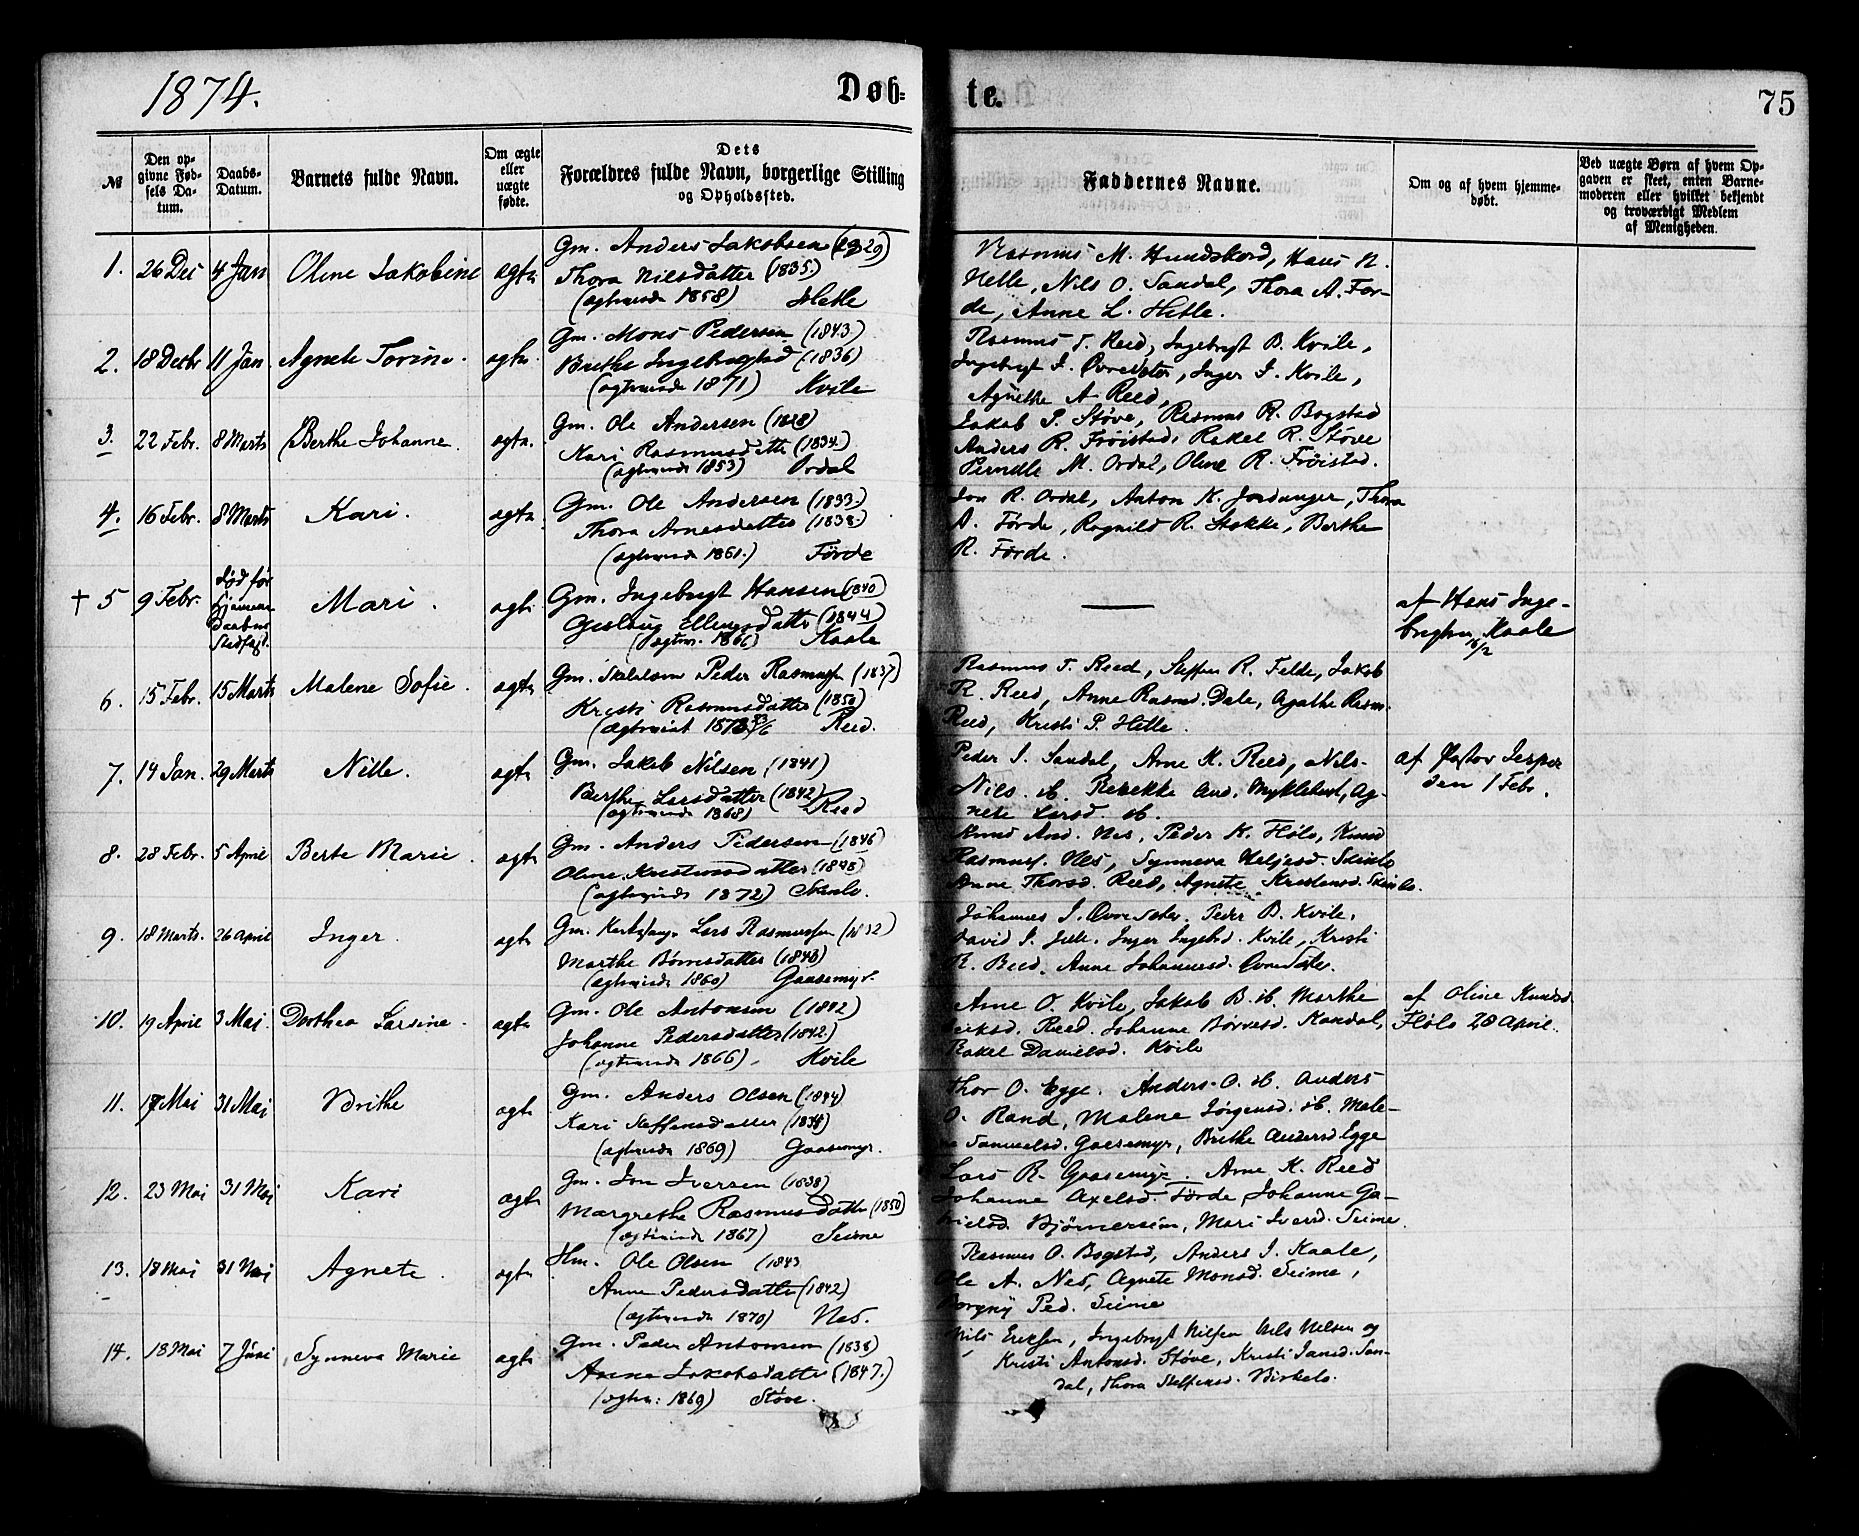 1874.
Døb=
te.
75
№
Den op-
givne Fød-
sels Da-
tum.
Daabs-
Datum.
Barnets fulde Navn.
Om ægte
eller
uægte
fødte.
Dets
Forældres fulde Navn, borgerlige Stilling
og Opholdssted.
Faddernes Navne.
Om og af hvem hjemme-
døbt.
Ved uægte Børn af hvem Op-
gaven er skeet, enten Barne-
moderen eller hvilket bekjendt
og troværdigt Medlem
af Menigheden.
1. 26 Dec 4 Jan Oline Jakobine ægte
Gm. Anders Jakobsen (1829)
Thora Nilsdatter (1835.)
(ægteviede 1858) Hetle
Rasmus M. Hundskord, Hans N.
Hetle, Nils O. Sandal, Thora A. För-
de, Anne L. Hetle.
2. 18 Decbr 11 Jan. Agnete Torine. ægte.
Gm. Mons Pedersen (1843.)
Brithe Ingebrigtsd (1836)
(ægteviede 1871) Kvile
Rasmus T. Reed, Ingebrigt B. Kvile,
Ingebrigt I. Øvresæter, Inger I. Kvile,
Agnethe A Reed,
3. 22 Febr. 8 Marts Berthe Johanne. ægte.
Gm. Ole Andersen (1828)
Kari Rasmusdatter (1834.)
(ægteviede 1853) Ordal
Jakob P. Støve, Rasmus R. Bogstad
Anders R. Frøistad, Rakel R. Støve
Pernille M. Ordal, Oline R. Frøistad.
4. 16 Febr. 8 Marts Kari. ægte
Gm. Ole Andersen (1833.)
Thora Arnesdatter (1838.)
(ægteviede 1861.) Førde
Jon R. Ordal, Anton K. Jordanger, Thora
A. Førde, Ragnild R. Stokke, Berthe
R. Førde.
† 5 9 Febr. død før
hjemme
Daabens
Stadfæst. Mari. ægte
Gm. Ingebrigt Hansen (1840)
Gjerlaug Ellingsdatter (1844)
(ægtev. 1866) Kaale
af Hans Inge-
brigtsen Kaale
16/2
6. 15 Febr. 15 Marts Malene Sofie. ægte
Gm. Skolelærer Peder Rasmussen (1837)
Kristi Rasmusdatter (1850)
(ægteviet 1873 23/6 Reed.
Rasmus T. Reed, Steffen R. Felde, Jakob
R. Reed, Anne Rasmd. Dale, Agathe Rasm.
Reed, Kristi P. Hetle.
7. 14 Jan. 29 Marts Nille. ægte
Gm. Jakob Nilsen (1841)
Berthe Larsdatter (1842)
(ægteviede 1868) Reed
Peder I. Sandal, Arne K. Reed, Nils
Nils. ib. Rebekke And. Myklebust, Ag-
nete Larsd. ib.
af Pastor Jesper
den 1 Febr.
8. 28 Febr. 5 April Berte Marie. ægte
Gm. Anders Pedersen (1846)
Oline Kristensdatter (1848)
(ægteviede 1872) Skinlo.
Knud And. Nes, Peder K. Flølo, Knud
Rasmuss. Nes, Synneva Heljesd. Skinlo
Anne Thorsd. Reed, Agnete Kristensd. Skinlo.
9. 18 Marts. 26 April Inger. ægte
Gm. Lars Rasmussen (1832)
Marthe Børresdatter (1840)
(ægteviede 1860) Gaasemyr.
Johannes I. Øvresæter. Peder B. Kvile.
David I. Inger Ingebd. Kvile, Kristi
R. Reed. Anne Johannesd. Øvresæter.
10. 19 April 3 Mai. Dorthea Larsine. ægte
Gm. Ole Antonsen (1842)
Johanne Pedersdatter (1842)
(ægteviede 1866). Kvile
Arne O. Kvile, Jakob B. ib. Marthe
Eriksd. Reed. Johanne Børresd. Kandal,
Rakel Danielsd. Kvile
af Oline Knudsd.
Flølo 28 April.
11. 17 Mai 31 Mai Brithe ægte
Gm. Anders Olsen (1844)
Kari Steffensdatter (1838)
(ægteviede 1869) Gaasemyr.
Thor O. Egge. Anders O. ib. Anders
O. Rand, Malene Jørgensd. ib. Male-
ne Samuelsd. Gaasemyr, Brithe Andersd Egge
12. 23 Mai 31 Mai Kari ægte
Gm. Jon Iversen (1838)
Margrethe Rasmusdatter (1850)
(ægteviede 1867) Seime
Lars R. Gaasemyr. Arne K. Reed
Johanne Axelsd. Førde, Johanne Ga-
brielsd. Bjørnereim, Mari Iversd. Seime.
13. 18 Mai 31 Mai Agnete. ægte
Hm. Ole Olsen (1843
Anne Pedersdatter (1842)
(ægteviede 1870) Nes.
Rasmus O. Bogstad, Anders I. Kaale,
Ole A. Nes, Agnete Monsd. Seime,
Borgny Ped. Seime
14. 18 Mai 7 Juni Synneva Marie ægte
Gm. Peder Antonsen (1838)
Anne Jakobsdatter (1847.)
(ægtev. 1869) Støve.
Nils Eriksen, Ingebrigt Nilsen Nils Nelsen og
Kristi Antonsd. Støve, Kristi Jansd. San-
dal, Thora Steffensd. Birkelo.